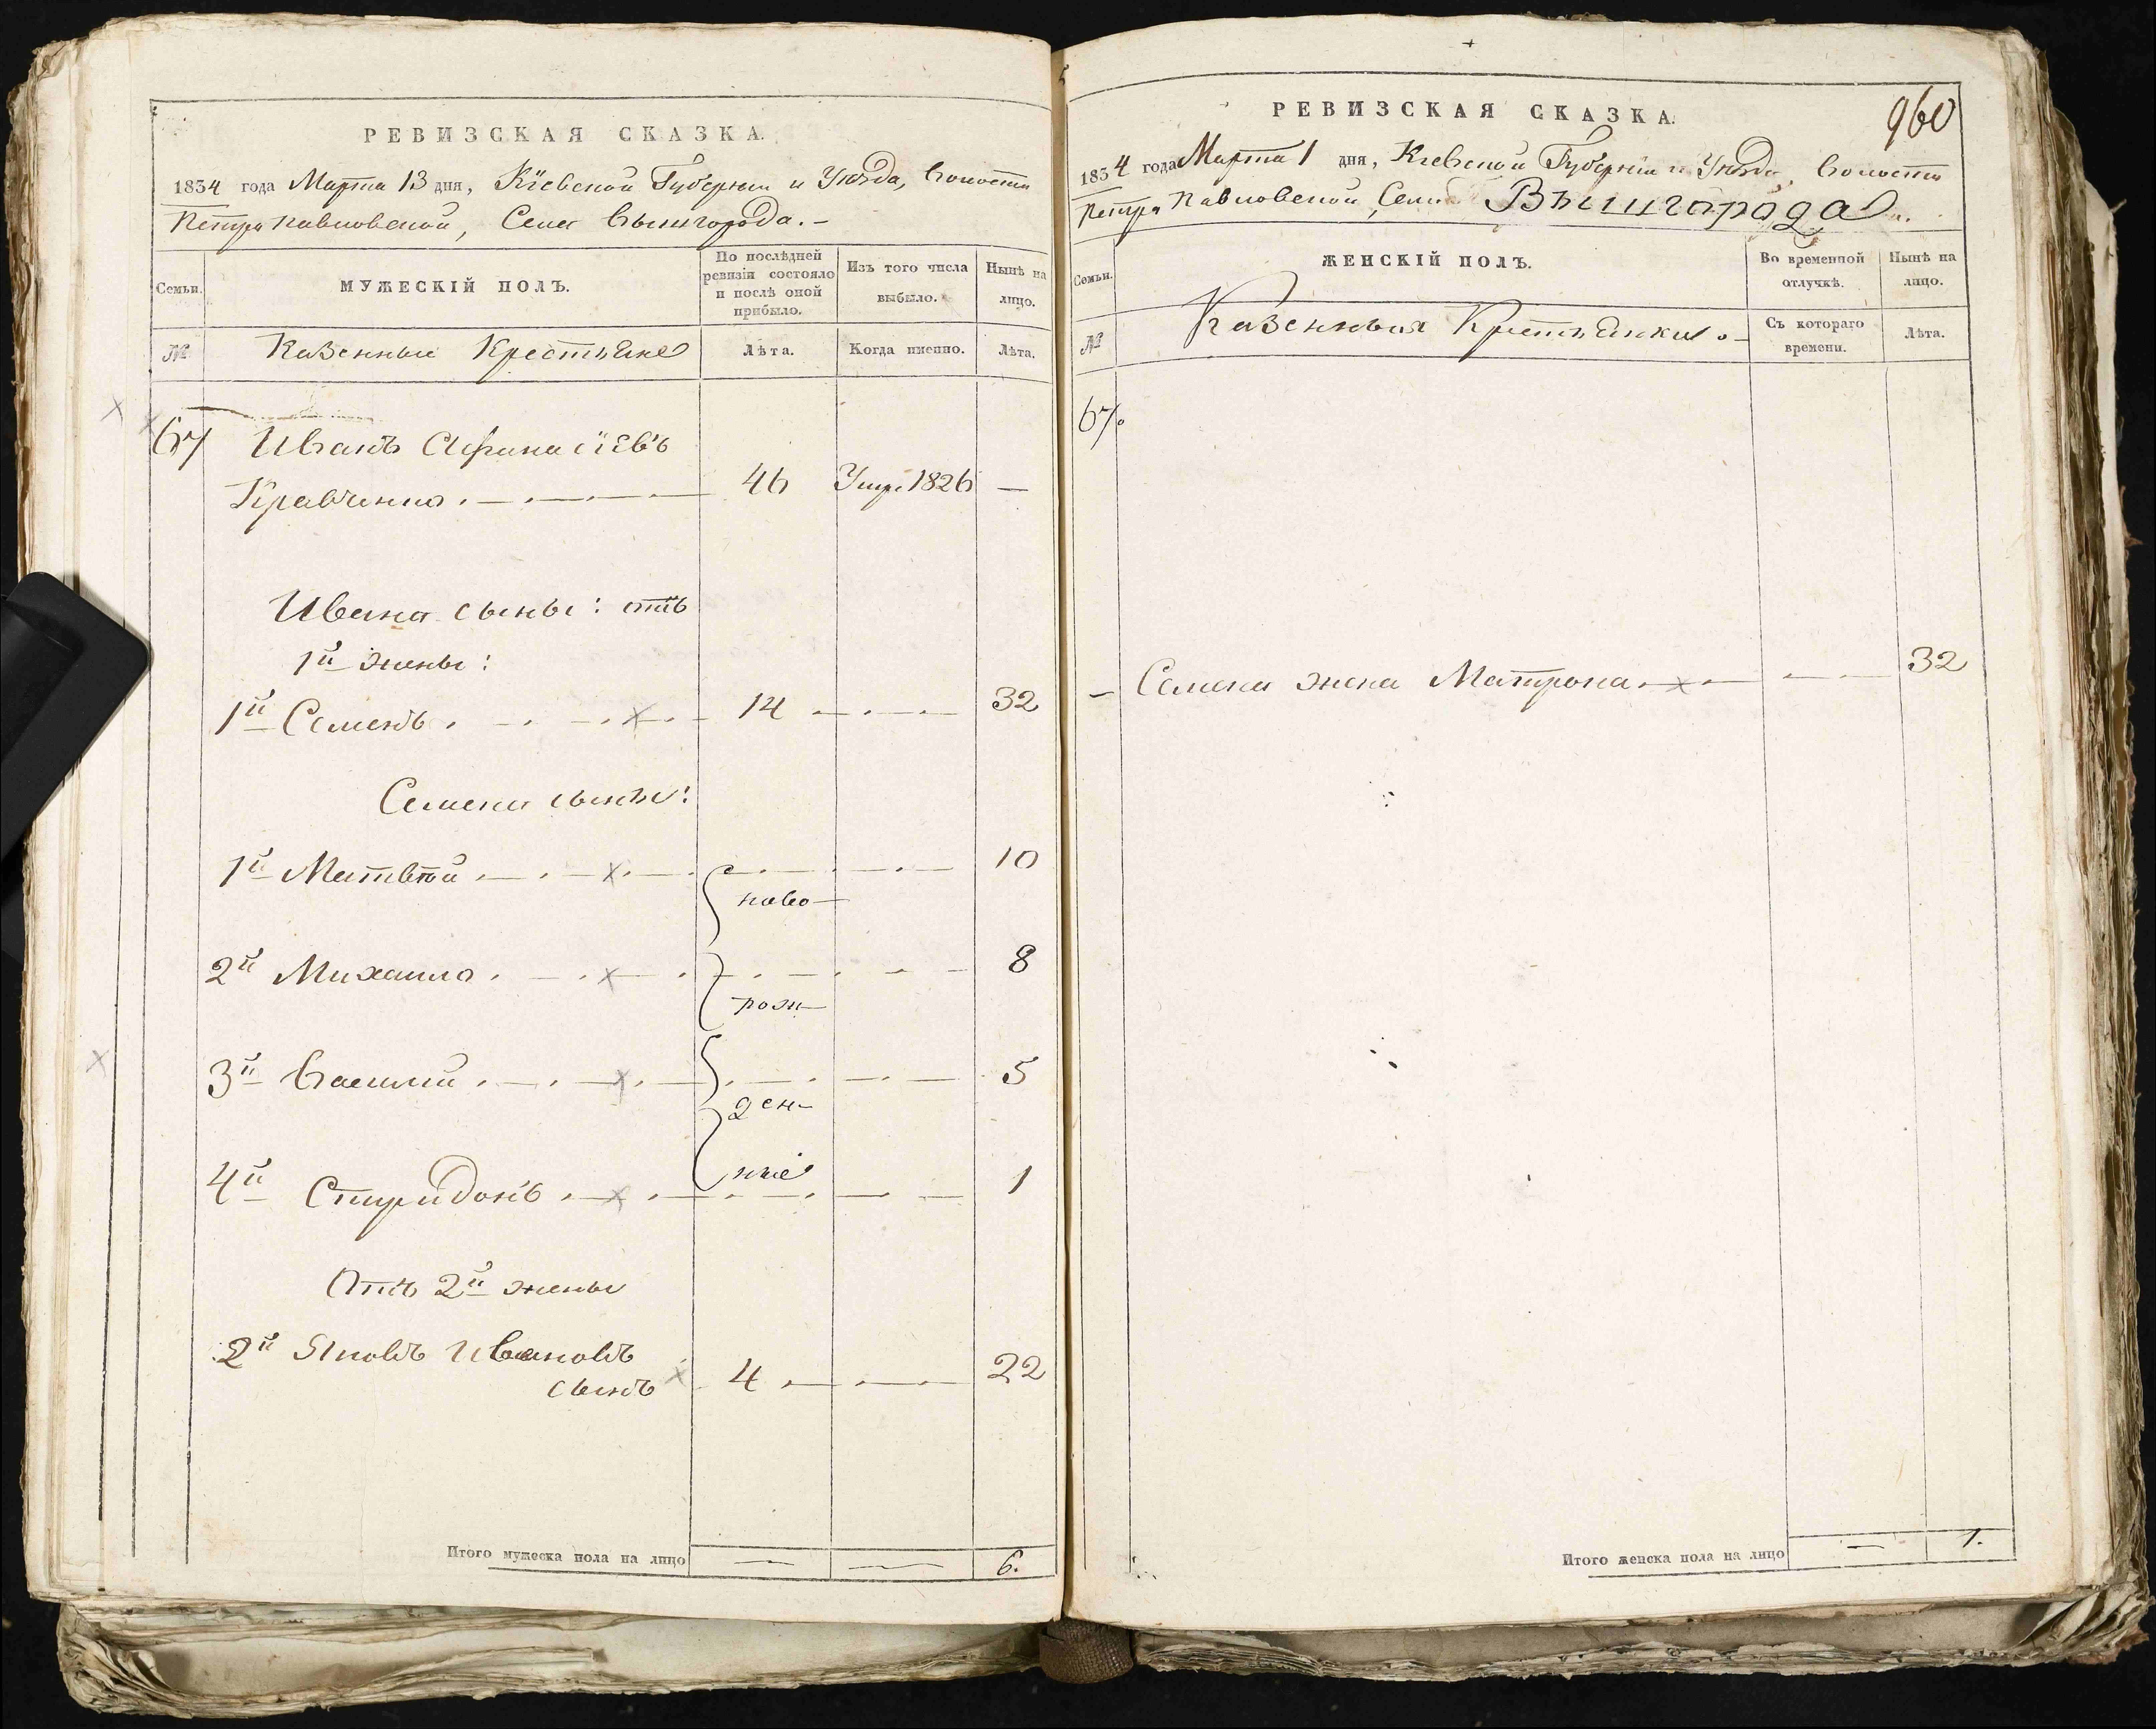 РЕВИЗСКАЯ СКАЗКА.
1834 года Марта 13 дня, Кіевской Губерніи и Уѣзда, Волости
Петропавловской, Села Вышгорода. -
Семьи.
МУЖЕСКІЙ ПОЛЪ.
По послѣдней
ревизіи состояло
и послѣ оной
прибыло.
Изъ того числа
выбыло.
Нынѣ на
лицо.
№
Казенные Крестьяне
Лѣта.
Когда именно.
Лѣта.
67 Иванъ Афанасіевъ
Кравченко 46 Умр. 1826 —
Ивана сыны: отъ
1й жены:
1й Семенъ 14 32
Семена сыны:
1й Матвѣй 10
ново
2й Михаило 8
рож
3й Василій 5
ден
4й Спиридонъ 1
ные
Отъ 2й жены
2й Яковъ Ивановъ
сынъ 4 22
Итого мужеска пола на лицо — — 6.
960
РЕВИЗСКАЯ СКАЗКА.
1834 года Марта 1 дня, Кіевской Губерніи и Уѣзда, Волости
Петропавловской, Села Вышгорода
Семьи.
ЖЕНСКІЙ ПОЛЪ.
Во временной
отлучкѣ.
Нынѣ на
лицо.
№
Казенныя Крестьянки. -
Съ котораго
времени.
Лѣта.
67.
- Семена жена Матрона 32
Итого женска пола на лицо — 1.